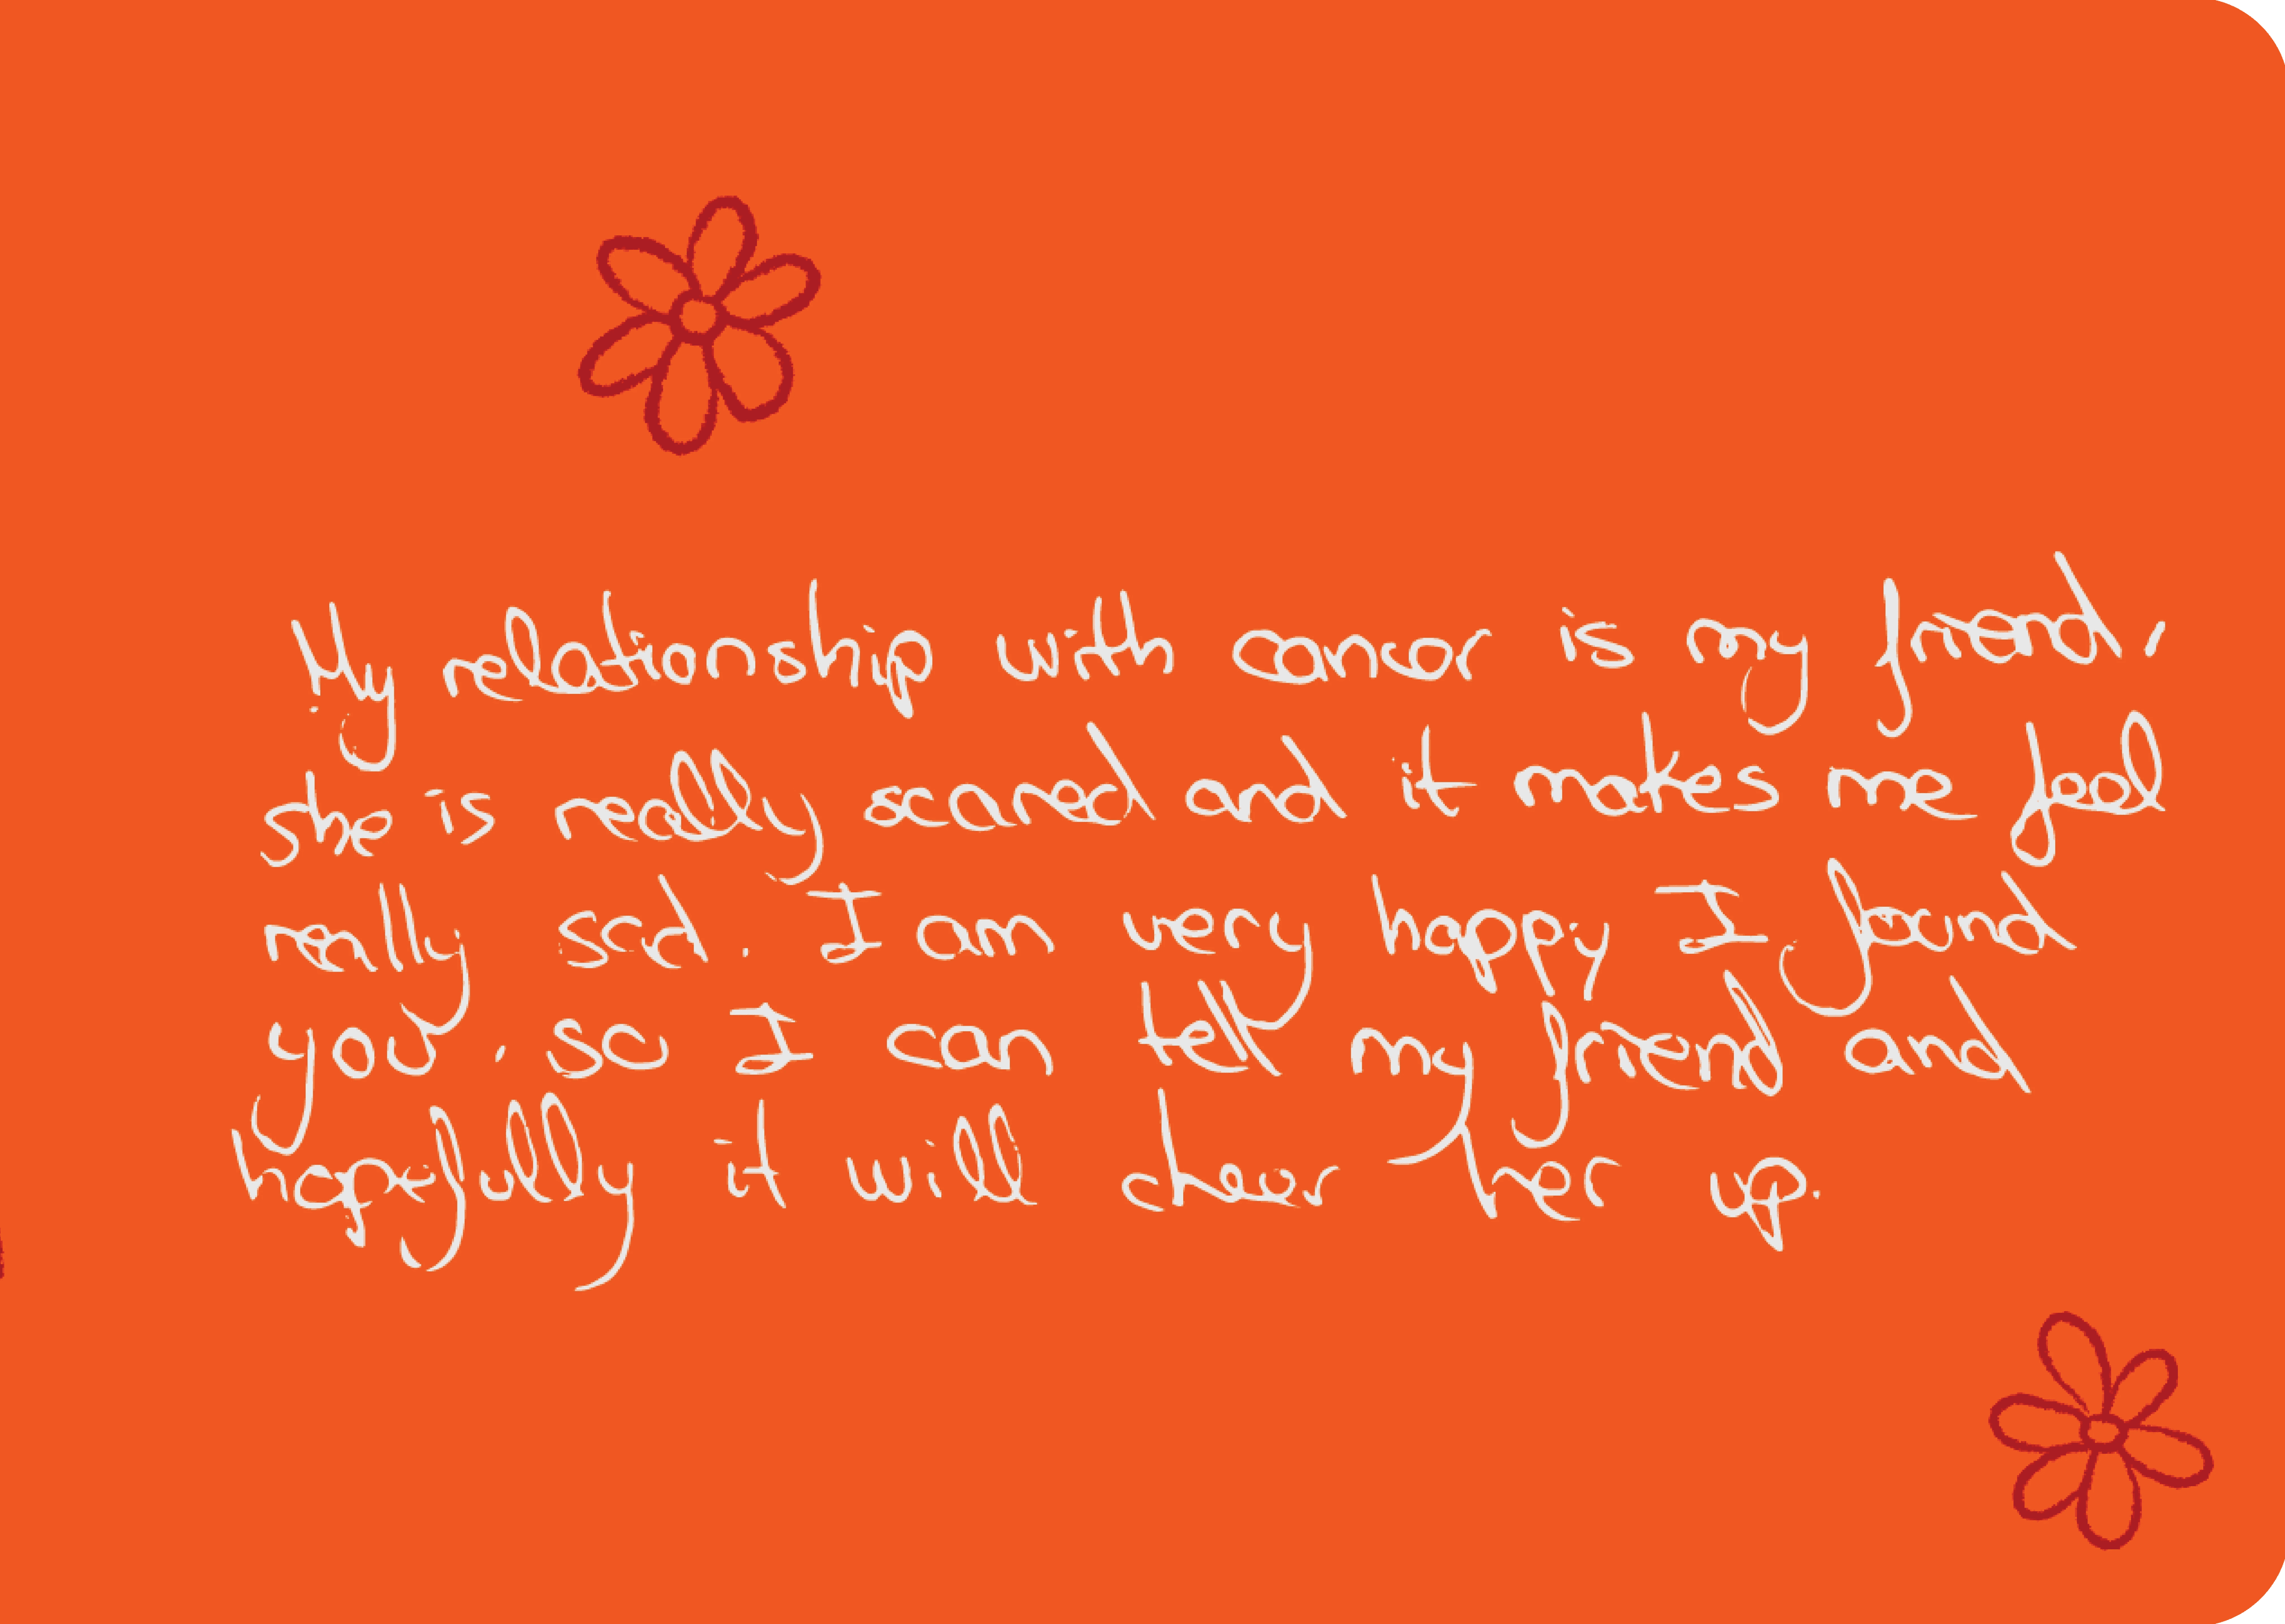 My relationship with cancer is my friend,
she is really scared and it makes me feel
really sad. I am very happy I found
you, so I can tell my friend and
hopefully it will cheer her up.